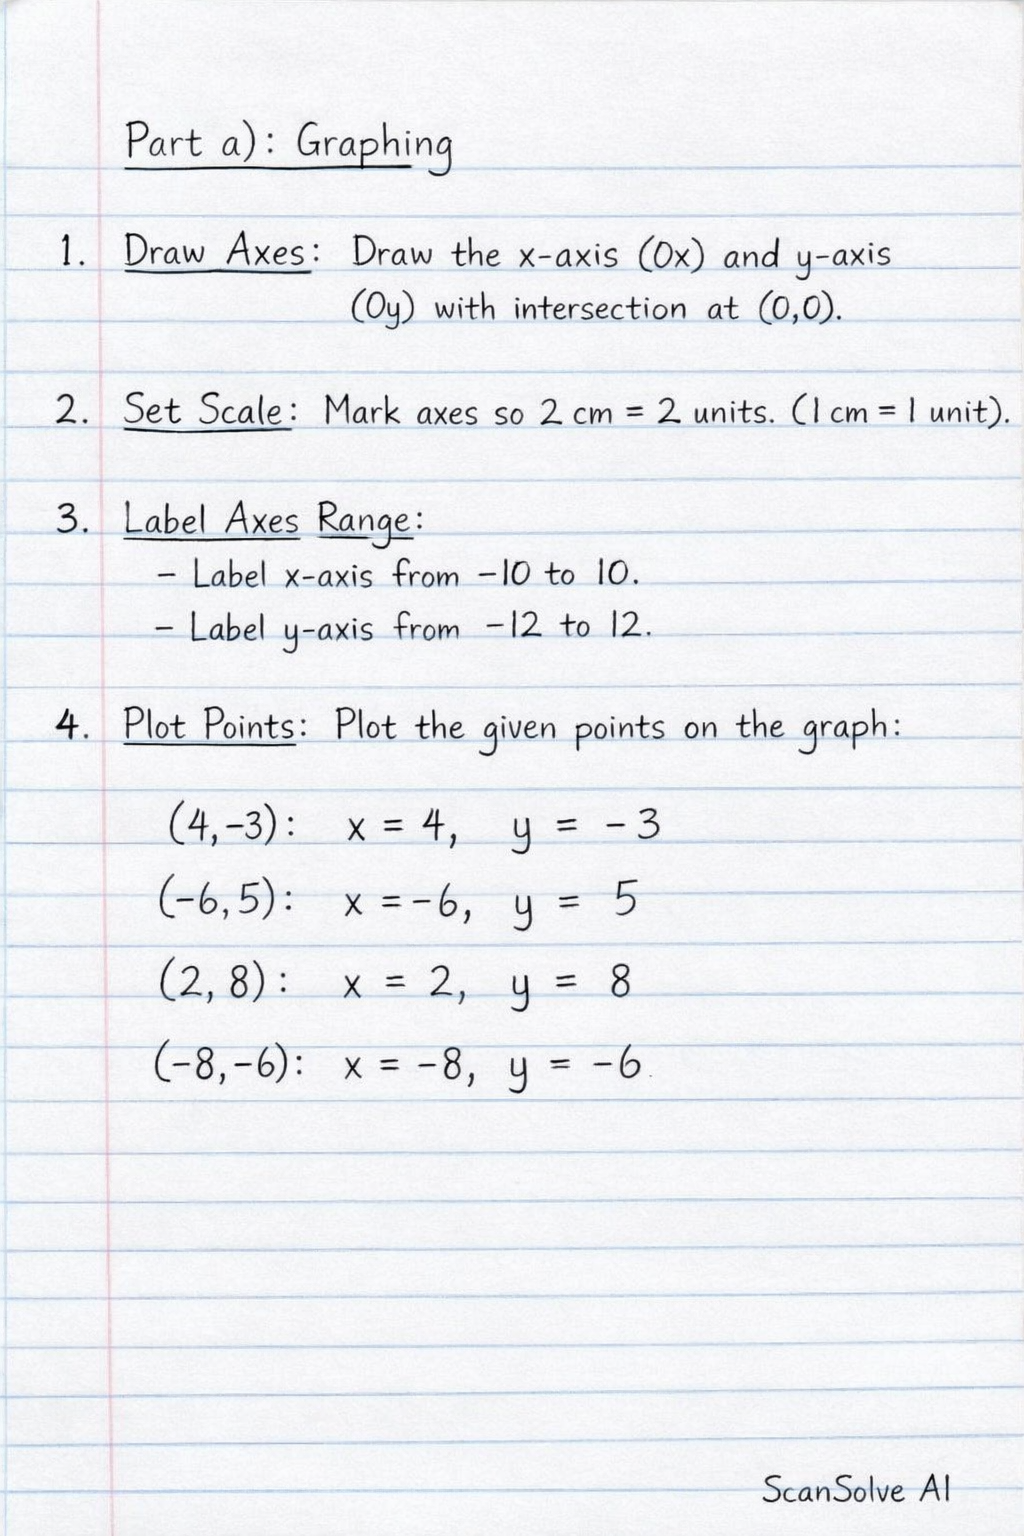 Part a): Graphing
1. Draw Axes: Draw the x-axis (Ox) and y-axis
(Oy) with intersection at (0,0).
2. Set Scale: Mark axes so 2 cm = 2 units. (1 cm = 1 unit).
3. Label Axes Range:
– Label x-axis from –10 to 10.
– Label y-axis from –12 to 12.
4. Plot Points: Plot the given points on the graph:
(4,–3): x = 4, y = –3
(–6,5): x = –6, y = 5
(2,8): x = 2, y = 8
(–8,–6): x = –8, y = –6
ScanSolve AI